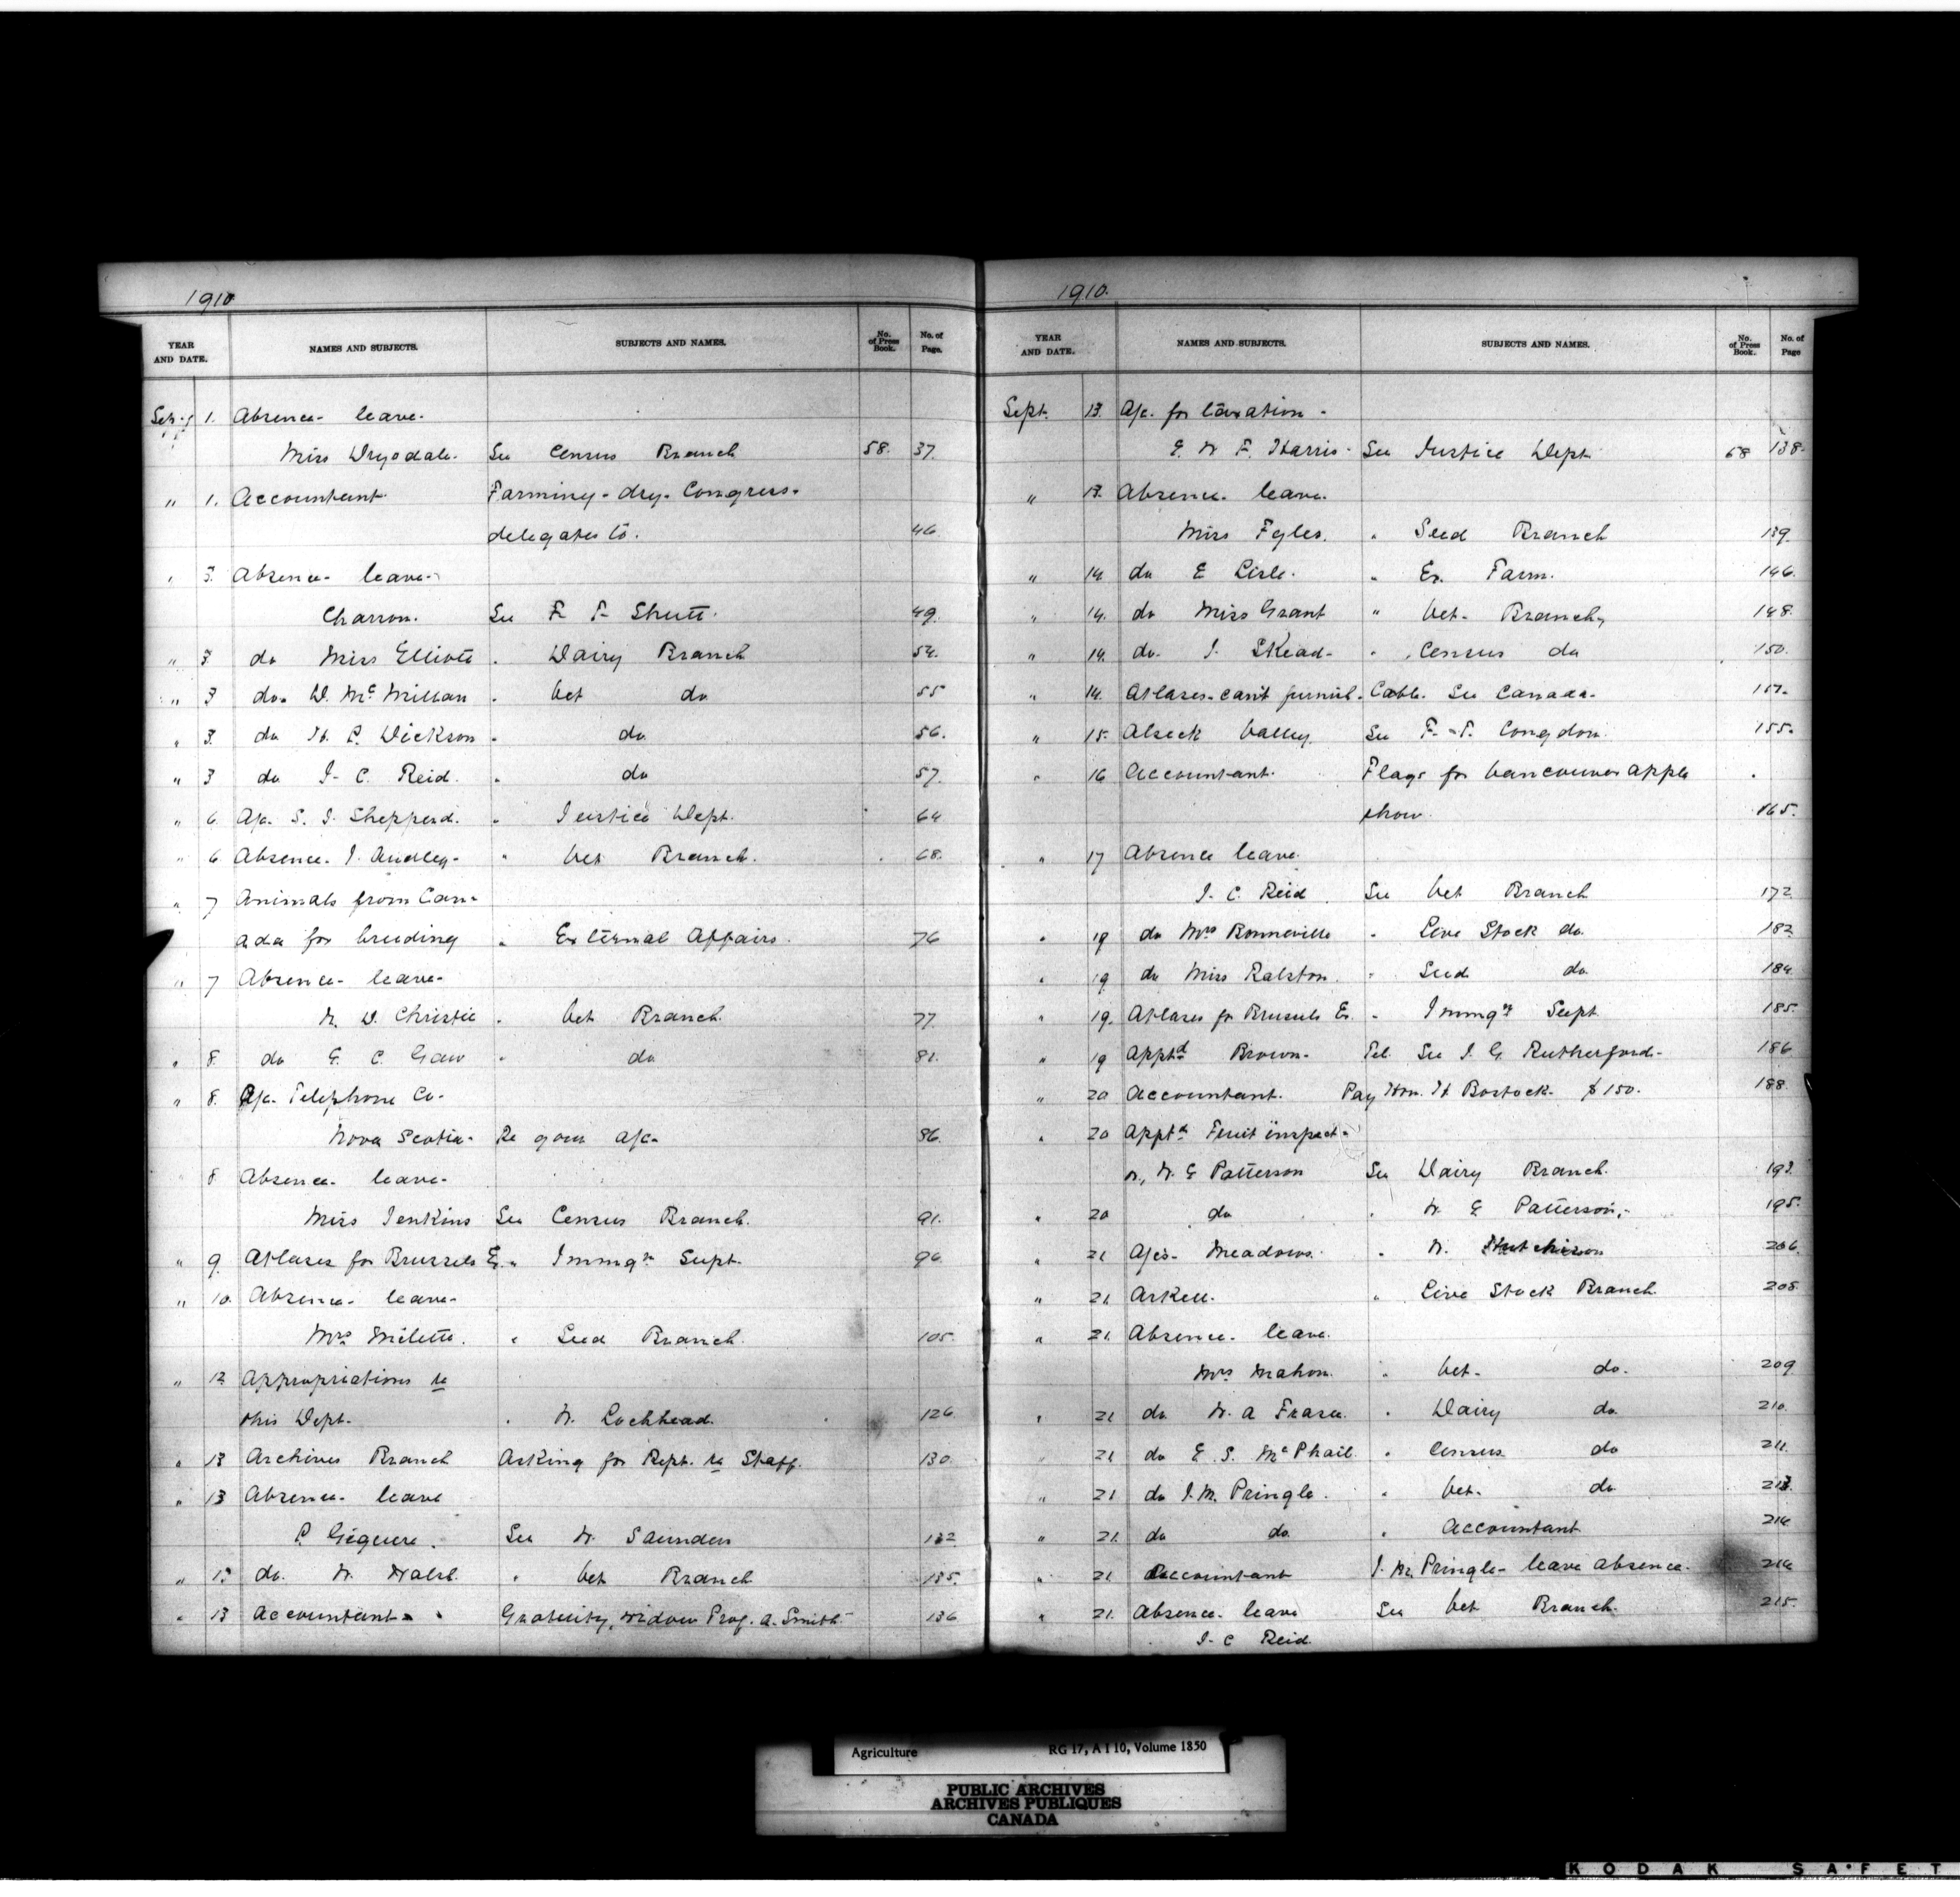 1910
YEAR AND DATE. NAMES AND SUBJECTS. SUBJECTS AND NAMES. No. of Press Book. No. of Page.
Sept 1. Absence- leave-
Miss Drysdale- See Census Branch 58. 37.
" 1. Accountant- Farming-dry-Congress-
delegates to. 46
" 3. Absence- leave-
Charron. See F T- Shutt. 49.
" 3. do Miss Elliott " Dairy Branch 54.
" 3 do. D. McMillan " Vet do 55
" 3. do H. P. Dickson " do 56.
" 3 do J- C. Reid. " do 57.
" 6. A/c. S. J. Shepperd. " Justice Dept. 64
" 6 Absence- J. Audley- " Vet Branch. 68.
" 7 Animals from Can-
ada for breeding " External Affairs. 76
" 7 Absence- leave-
N. D. Christie " Vet Branch. 77.
" 8. do G. C. Gaw " do 81.
" 8. A/c. Telephone Co-
Nova Scotia- Re your a/c- 86.
" 8 Absence- leave-
Miss Jenkins See Census Branch. 91.
" 9. Atlases for Brussels Ex. " Immgn Supt. 96
" 10. Absence- leave-
Mrs Milette. " Seed Branch. 105.
" 12 Appropriations re
this Dept. " W. Lochhead. 126
" 13 Archives Branch Asking for Rept. re Staff. 130.
" 13 Absence- leave
P. Giguere. See W Saunders 132
" 13 do. W. Walsh. " Vet Branch 135.
" 13 Accountant- Gratuity, widow Prof. A. Smith- 136
1910.
YEAR AND DATE. NAMES AND SUBJECTS. SUBJECTS AND NAMES. No. of Press Book. No. of Page
Sept. 13. A/c. for taxation-
E. W F. Harris- See Justice Dept. 58 138.
" 13. Absence- leave.
Miss Fyles. " Seed Branch 139.
" 14 do E Lisle. " Ex. Farm. 146.
" 14. do Miss Grant " Vet- Branch, 148.
" 14. do- J. Skead- " Census do 150.
" 14. Atlases-can't furnish- Cable. See Canada- 151.
" 15- Alseck Valley. See F.-T. Congdon. 155.
" 16 Accountant. Flags for Vancouver Apple
show. 165.
" 17 Absence leave.
J- C. Reid. See Vet Branch 172
" 19 do Mrs Bonneville " Live Stock do. 182
" 19. do Miss Ralston. " Seed do. 184
" 19. Atlases for Brussels Ex. " Immgn Supt. 185.
" 19 Apptd Brown- Tel. See J. G. Rutherford- 186
" 20 Accountant. Pay Hon. H Bostock- $150. 188.
" 20 Apptd Fruit inspect-
or, W. G Patterson See Dairy Branch. 193.
" 20 do " W. G Patterson,- 195.
" 21 A/cs- Meadows. " W. Hutchison 206.
" 21. Arkell. " Live Stock Branch. 208.
" 21. Absence- leave.
Mrs Mahon. " Vet- do. 209
" 21 do W. A Fraser. " Dairy do. 210.
" 21 do E. S. McPhail. " Census do 211.
" 21 do J. M. Pringle. " Vet. do 213.
" 21. do do. " Accountant 214
" 21 Accountant J. M. Pringle- leave absence- 214
" 21. Absence- leave See Vet Branch. 215.
J- C Reid.
Agriculture RG 17, A I 10, Volume 1850
PUBLIC ARCHIVES
ARCHIVES PUBLIQUES
CANADA
KODAK SAFET